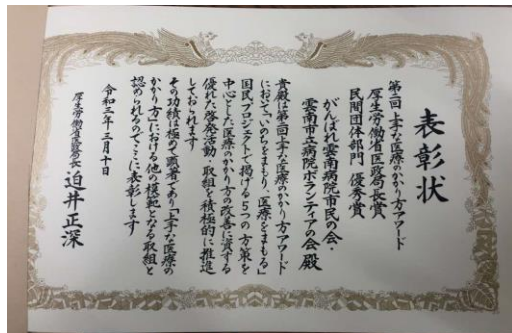 表彰状
第二回 上手な医療のかかり方アワード
厚生労働省医政局長賞
民間団体部門 優秀賞
がんばれ雲南病院市民の会・
雲南市立病院ボランティアの会 殿
貴殿は第二回上手な医療のかかり方アワード
において「いのちをまもり、医療をまもる」
国民プロジェクトで掲げる5つの方策を
中心とした医療のかかり方の改善に資する
優れた啓発活動、取組を積極的に推進
しておられます
その功績は極めて顕著であり「上手な医療の
かかり方」における他の模範となる取組と
認められるのでここに表彰します
令和三年三月十日
厚生労働省医政局長 迫井正深